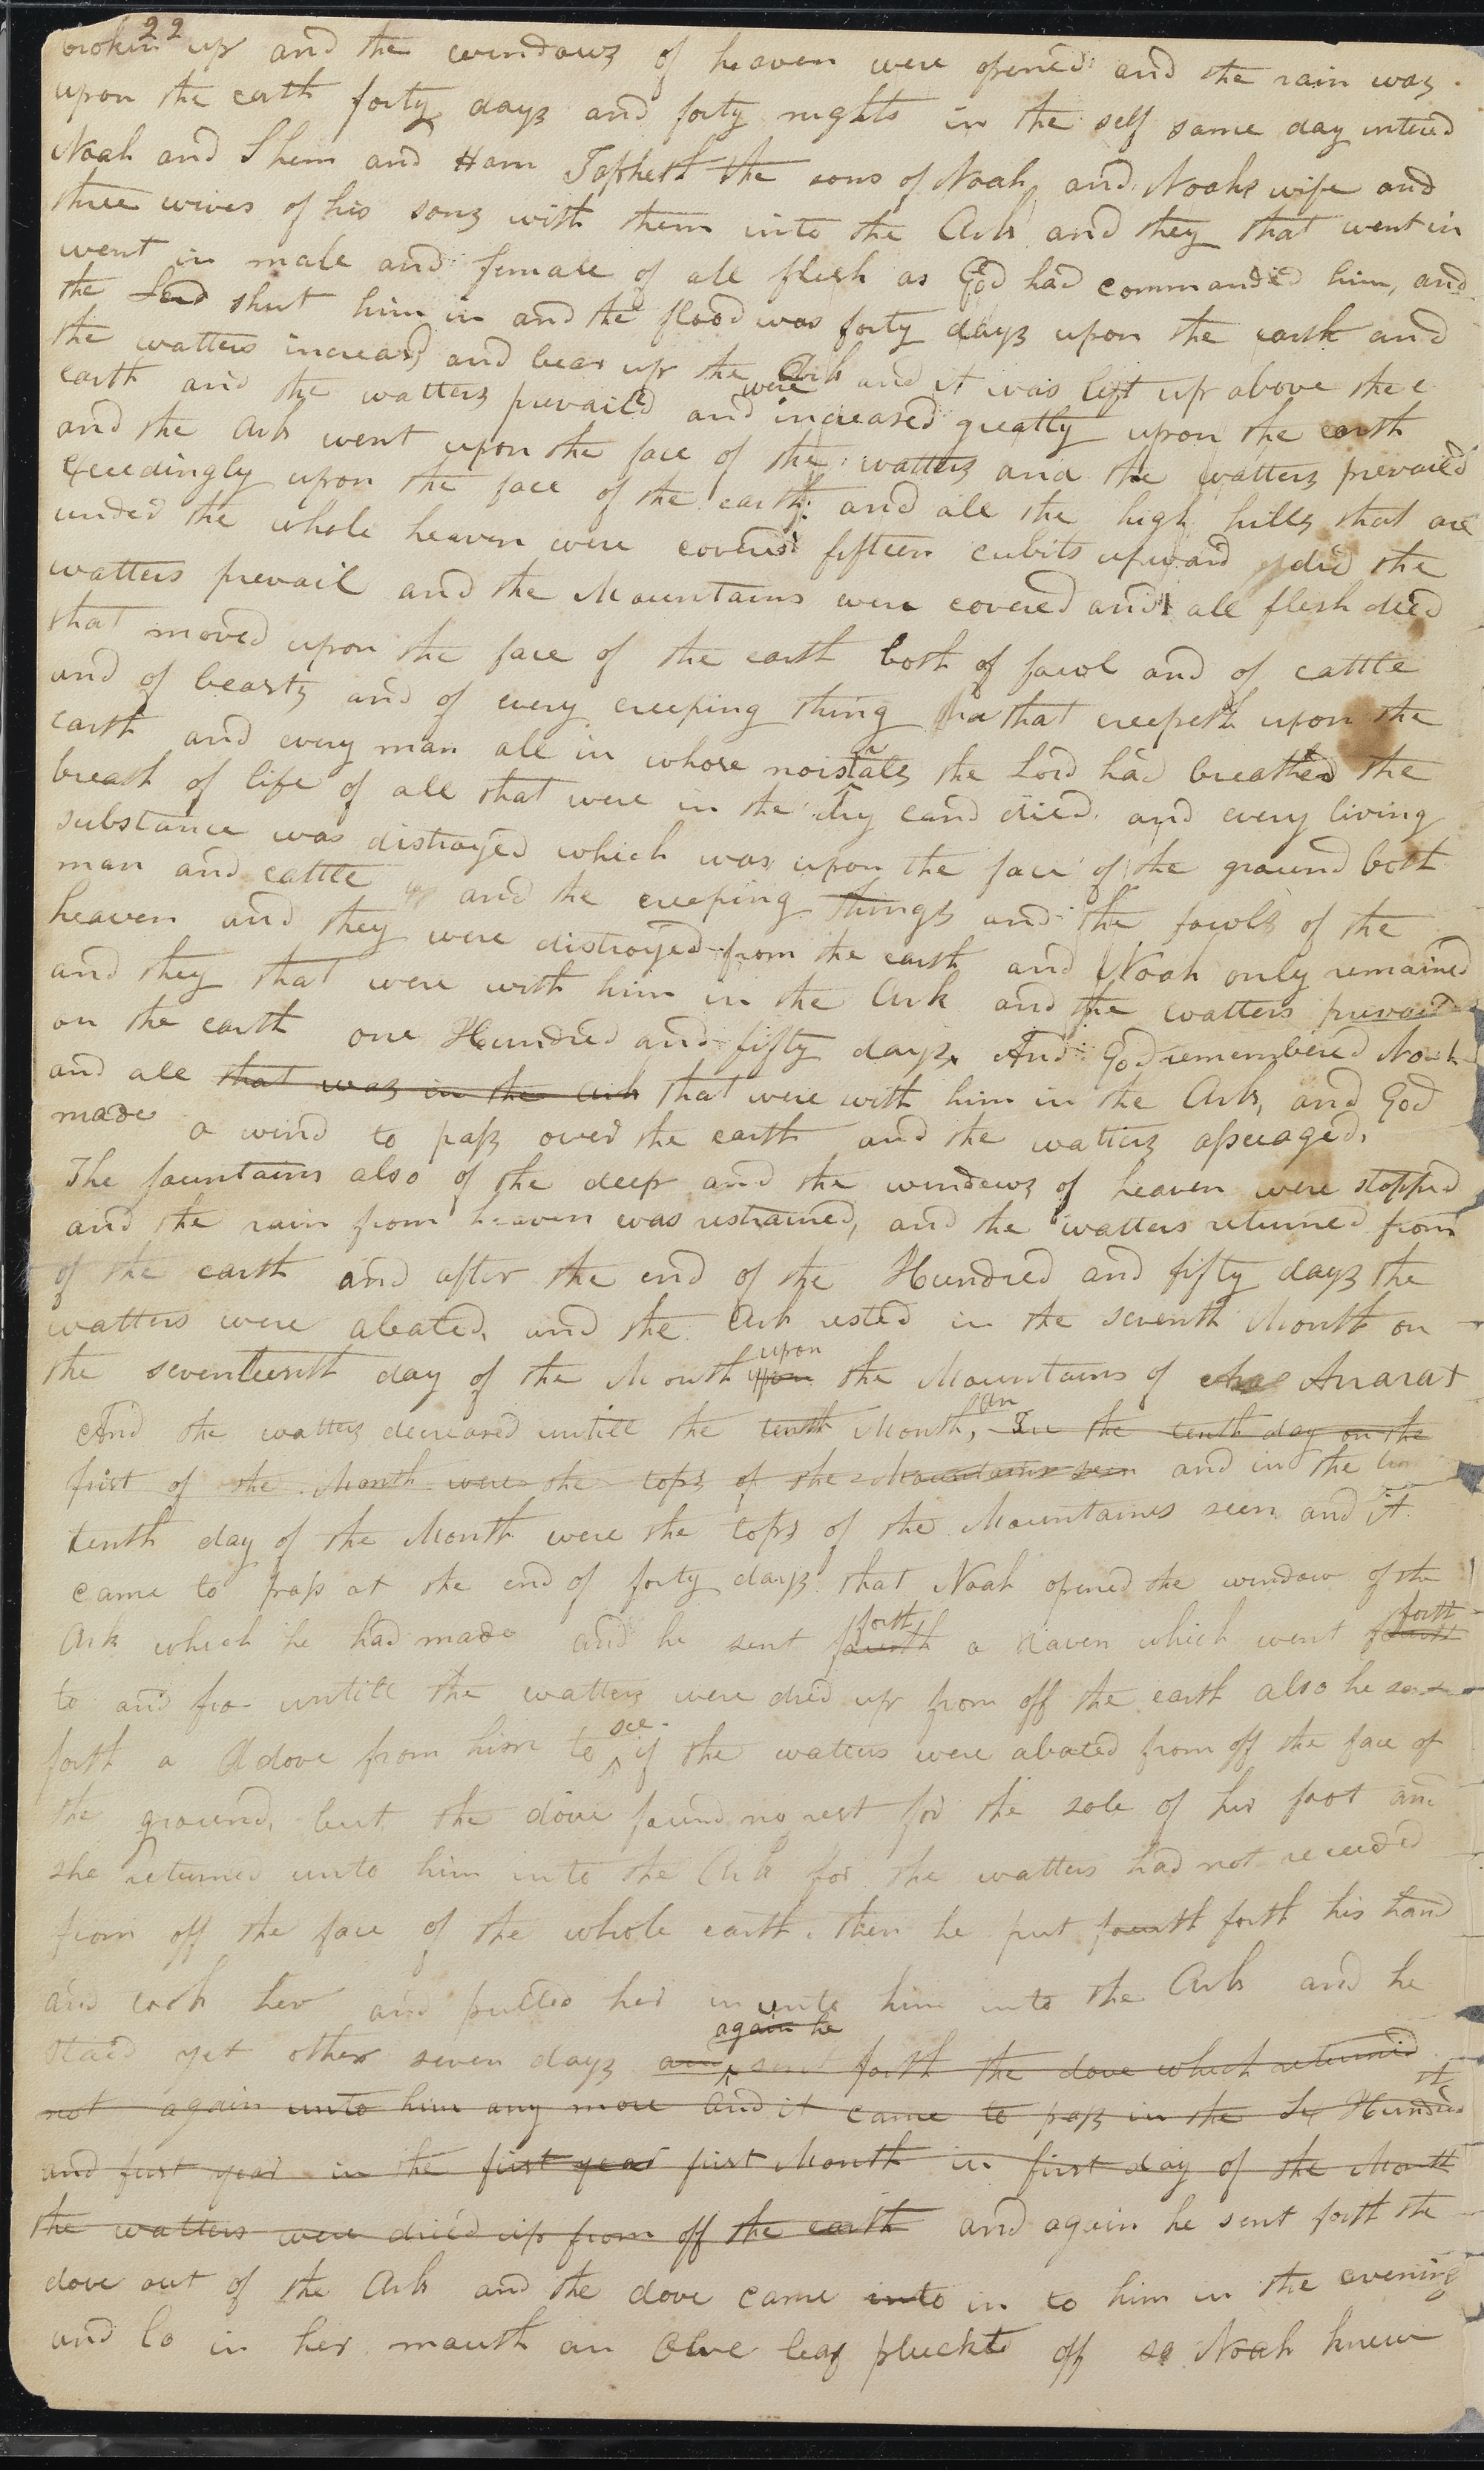 22
broken up and the windows of heaven were opened and the rain was
upon the earth forty days and forty nights in the self same day entered
Noah and Shem and Ham Japheth the sons of Noah and Noahs wife and
three wives of his sons with them into the Ark and they that went in
went in male and female of all flesh as God had commanded him, and
the Lord shut him in and the flood was forty days upon the earth and
the watters increasd and bear up the Ark and it was lift up above the e
earth and the watters prevailed and were increased greatly upon the earth
and the Ark went upon the face of the watters and the watters prevailed
exceedingly upon the face of the earth and all the high hills that are
under the whole heaven were covered fifteen cubits upward did the
watters prevail and the Mountains were covered and all flesh died
that moved upon the face of the earth both of fowl and of cattle
and of beasts and of every creeping thing that creepeth upon the
earth and every man all in whose noistals the Lord had breathed the
breath of life of all that were in the dry land died. and every living
substance was distroyed which was upon the face of the ground both
man and cattle and the creeping things and the fowls of the
heaven and they were distroyed from the earth and Noah only remained
and they that were with him in the Ark and the watters prevaild
on the earth one Hundred and fifty days. And God remembered Noah
and all that was in the Ark that were with him in the Ark, and God
made a wind to pass over the earth and the watters assuaged,
The fountains also of the deep and the windows of heaven were stopped
and the rain from heaven was restrained, and the watters returned from
of the earth and after the end of the Hundred and fifty days the
watters were abated, and the Ark rested in the seventh Month on
the seventeenth day of the Month upon the Mountains of Ararat
And the watters decreased untill the tenth Month, In the tenth day on the
first of the Month were the tops of the Mountains seen and in the
tenth day of the Month were the tops of the Mountains seen and it
came to pass at the end of forty days that Noah opened the window of the
Ark which he had made and he sent fourth forth a Raven which went fourth forth
to and fro untill the watters were dried up from off the earth also he sent
forth a dove from him to see if the watters were abated from off the face of
the ground, but the dove found no rest for the sole of her foot and
she returned unto him into the Ark for the watters had not receeded
from off the face of the whole earth. then he put fourth forth his hand
and took her and pulled her in unto him into the Ark and he
staid yet other seven days and again he sent forth the dove which returned
not again unto him any more And it came to pass in the Six Hundred
and first year in the first year first Month in first day of the Month
the watters were dried up from off the earth and again he sent forth the
dove out of the Ark and the dove came into in to him in the evening
and lo in her mouth an Olve leaf pluckt off so Noah knew